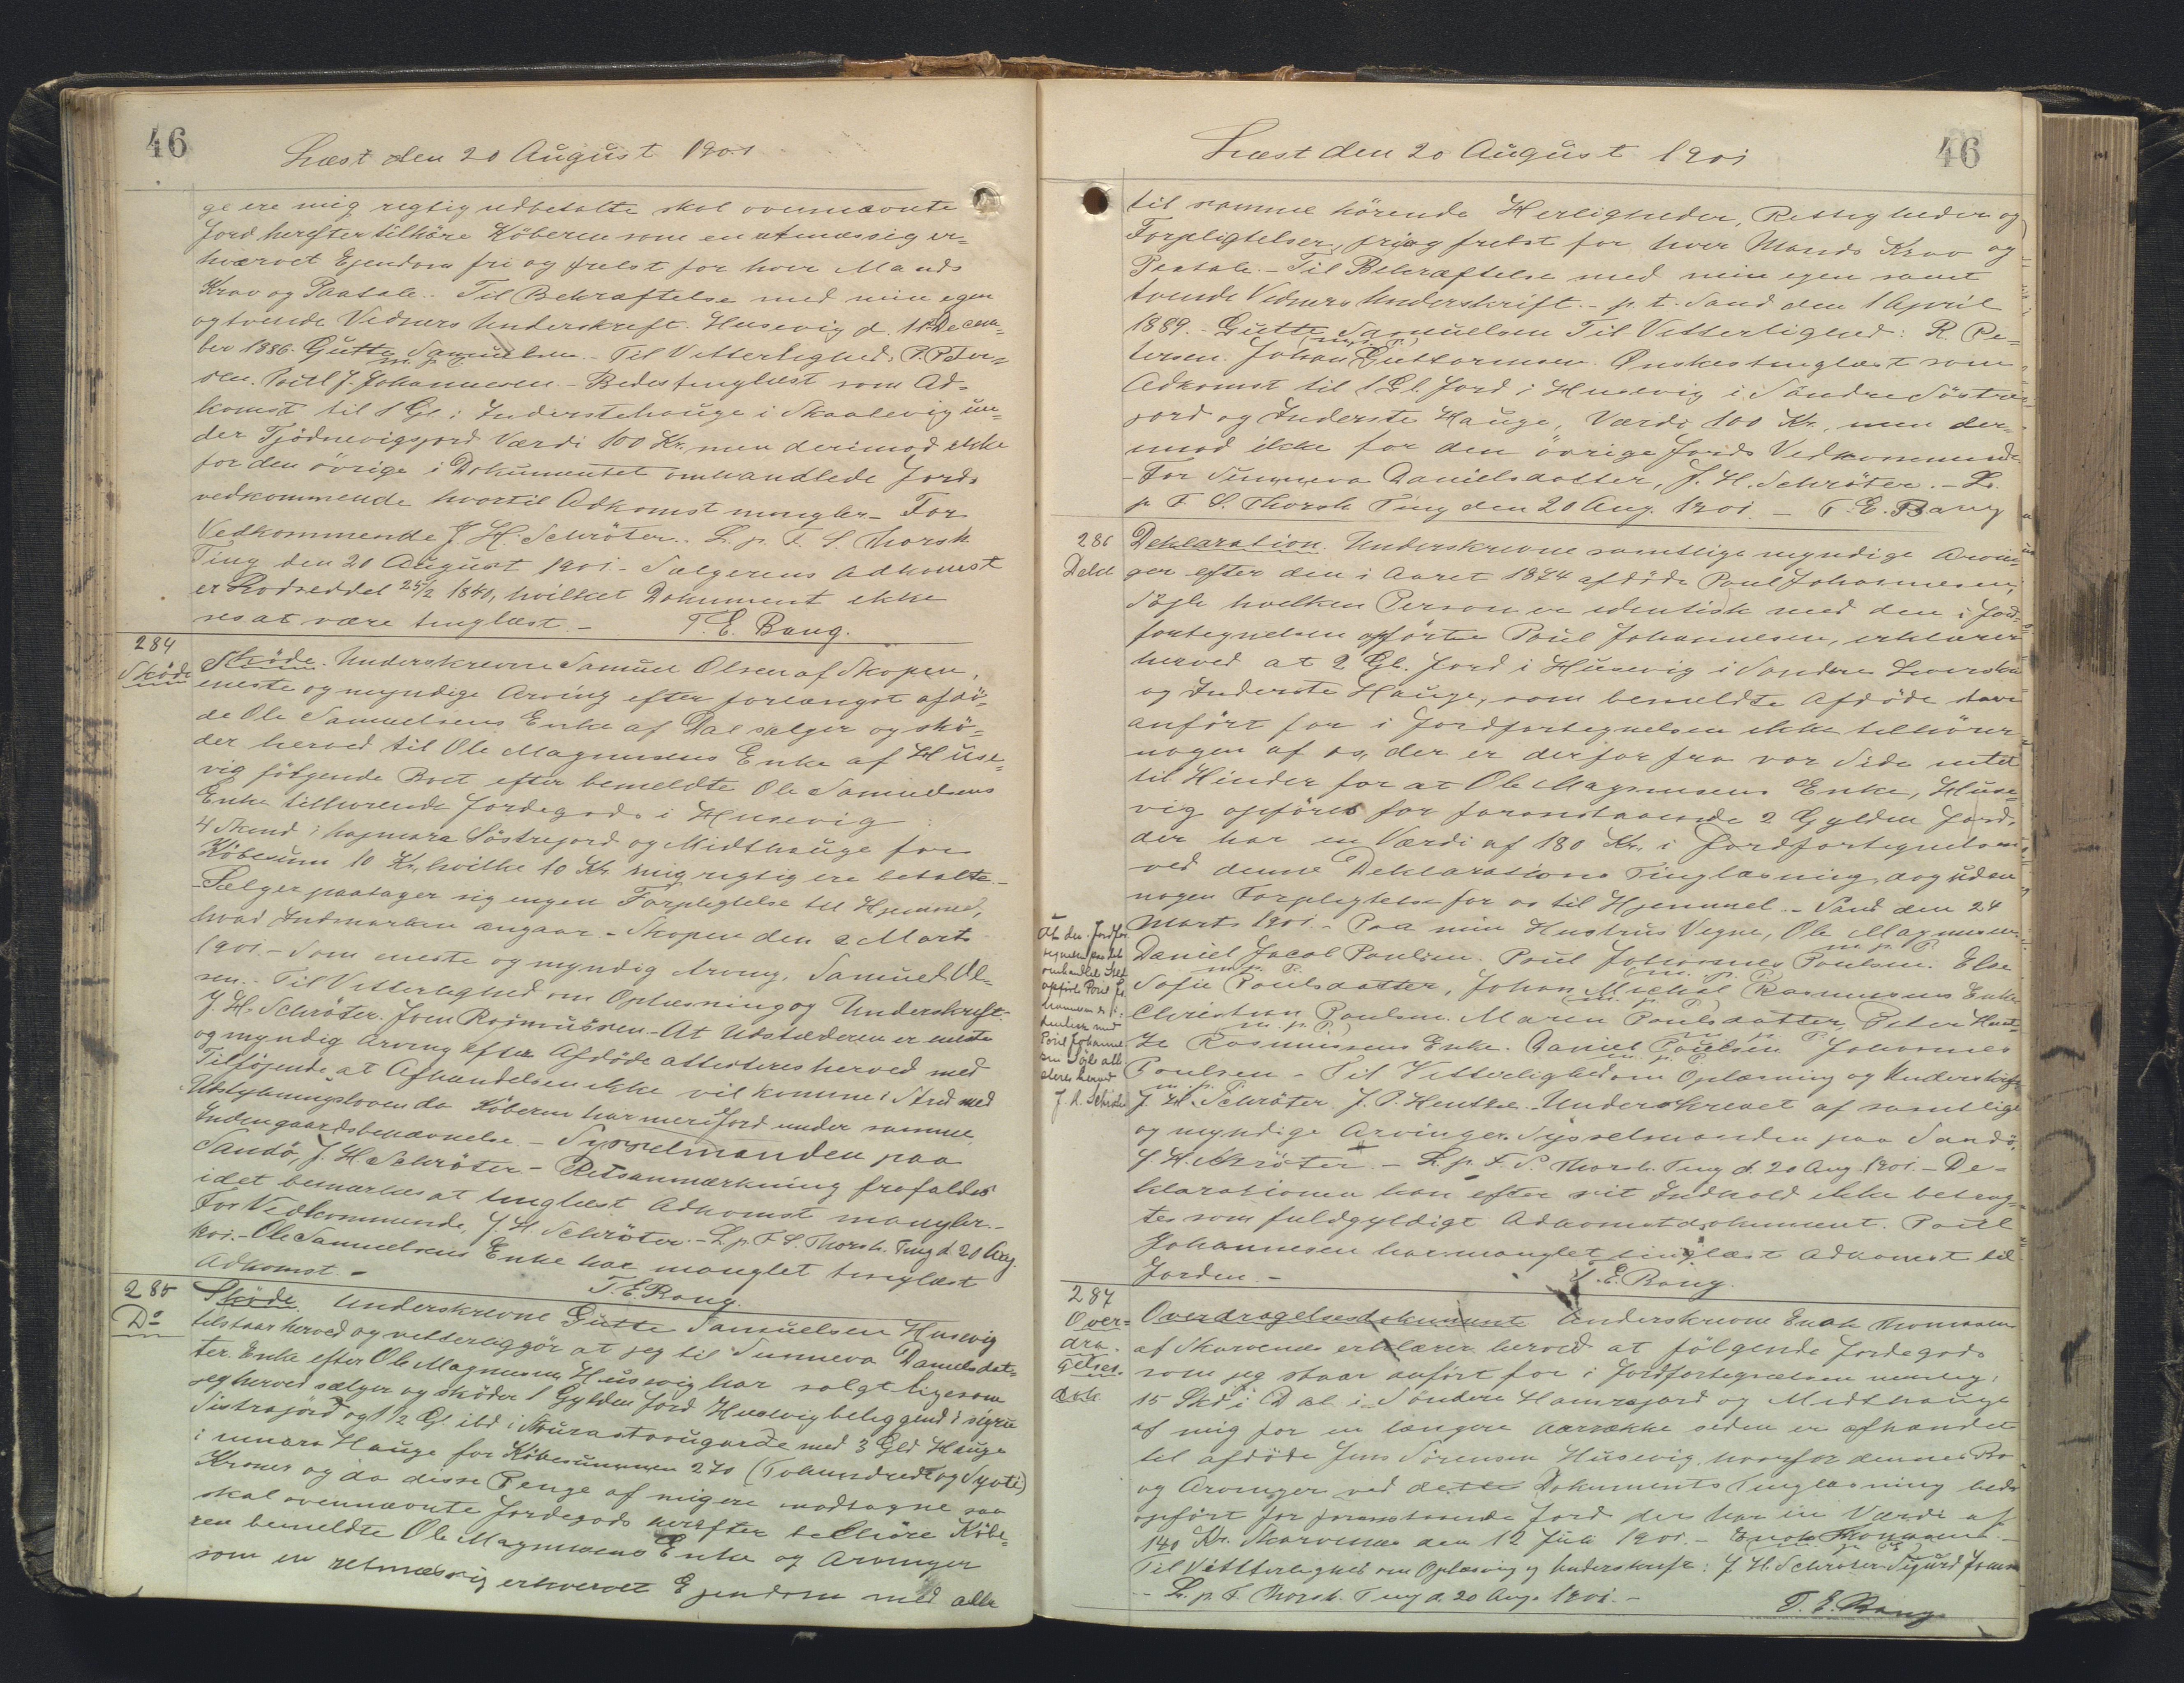 46
Læst den 20 August 1901
ge ere mig regtig udbetalte skal ovennævnte
Jord herefter tilhøre Köberen som en retmæssig er=
hvervet Ejendom fri og frelst for hver Mands
Krav og Paatale. Til Bekræftelse med min egen
og tvende Vidners Underskreft. Husevig d. 11 Decem=
ber 1886. Gutte Samuelsen - Til Vetterlighed, P. Peter=
m. p. P.
sen. Poul J. Johannesen - Bedes tinglæst som Ad=
komst til 1 Gl. i Inderstehauge i Skaalevig un=
der Tjödnevigsjord Værdi 100 Kr. men derimod ikke
for den övrige i Dokumentet omhandlede Jords
vedkommende hvortil Adkomst mangler - For
Vedkommende J. H. Schröter. L. p. F. S. Thorsh.
Ting den 20 August 1901 - Sælgerens Adkomst
er Lodseddel 25/2 1841, hvilket Dokument ikke
ses at være tinglæst. - T. E. Bang.
284
Sköde
Sköde. Underskrevne Samuel Olsen af Skopen,
eneste og myndige Arving efter forlængst afdö=
de Ole Samuelsens Enke af Dal sælger og skö=
der herved til Ole Magnusens Enke af Huse=
vig fölgende Bret efter bemeldte Ole Samuelsens
Enke tilhørende Jordegods i Husevig:
4 Skind i hajmara Söstrejord og Midthauge for
Köbesum 10 Kr, hvilke 10 Kr mig regtig ere betalte. -
- Sælger paatager sig ingen Forpligtelse til Hjemmel,
hvad Indmarken angaar. - Skopen den 2 Marts
1901. - Som eneste og myndig Arving, Samuel Ol=
sen. - Til Vetterlighed om Oplæsning og Underskreft:
J. H. Schröter. Joen Rasmussen. - At Udstederen er eneste
og myndig Arving efter Afdöde attesteres herved med
Tilföjende, at Afhændelsen ikke vil komme i Strid med
Udstykningsloven da Köberen har mere Jord under samme
Indengaardsbenævnelse. - Sysselmanden paa
Sandö, J. H. Schröter - Retsanmærkning frafaldes
idet bemærkes at tinglæst Adkomst mangler. -
For Vedkommende, J. H. Schröter. - L. p. F. S. Thorsh. Ting d. 20 Aug
1901. - Ole Samuelsens Enke har manglet tinglæst
Adkomst. - T. E. Bang.
285
Do
Sköde. Underskrevne Gutte Samuelsen Husevig
tilstaar herved og vetterliggör at jeg til Sunneva Danielsdat=
ter. Enke efter Ole Magnusen Husevig har solgt ligesom
jeg herved sælger og sköder 1 Gylden Jord Husevig beliggend i sigru
Sistrajord og 1 1/2 Gl. ibd i Sturastovugarde med 3 Gld Hauge
i innara Hauge for Köbesummen 270 (Tohundrede og Syvti)
Kroner og da disse Penge af mig ere modtagne saa
skal ovennævnte Jordegods herefter tilhöre Köbe=
ren bemeldte Ole Magnusens Enke og Arvinger
som en retmæssig erhvervet Ejendom med alle
46
Læst den 20 August 1901
til samme hörende Herligheder, Rettigheder og
Forpligtelser, fri og frelst for hver Mands Krav og
Paatale. - Til Bekræftelse med min egen samt
tvende Vidners Underskrift. - p. t. Sand den 1 April
1889. - Gutte Samuelsen Til Vetterlighed: R. Pe=
(m. p. P.)
tersen. Johan Guttormsen. Önskes tinglæst som
Adkomst til 1 Gl. Jord i Husevig i Söndre Söstre=
jord og Inderste Hauge, Værdi 100 Kr., men der=
imod ikke for den övrige Jords Vedkommende
- For Sunneva Danielsdatter, J. H. Schröter. - L.
p. F. S. Thorsh. Ting den 20 Aug. 1901. - T. E. Bang
286
Dekl
Deklaration. Underskrevne samtlige myndige Arvin=
ger efter den i Aaret 1874 afdöde Poul Johannesen,
Söjle hvilken Person er identisk med den i Jord=
fortegnelsen opförte Poul Johannesen, erklærer
herved at 2 Gl. Jord i Husevig i Söndre
og Inderste Hauge, som bemeldte Afdöde staar
anfört for i Jordfortegnelsen ikke tilhörer
nogen af os, der er derfor fra vor Side intet
til Hinder for at Ole Magnusens Enke, Huse=
vig opföres for foranstaaende 2 Gylden Jord,
der har en Værdi af 180 Kr. i Jordfortegnelsen
ved denne Deklarations Tinglæsning, dog uden
nogen Forpligtelse for os til Hjemmel. - Sand den 24
Marts 1901. - Paa min Hustrus Vegne, Ole Magnussen
m. p. P.
Daniel Jacob Poulsen. Poul Johannes Poulsen. Else
m. p. P.
Sofie Poulsdatter, Johan Michal Rasmussens Enke
(m. p. P.)
Christian Poulsen. Maren Poulsdatter, Peter Hent=
m. p. P.
ze Rasmussens Enke. Daniel Poulsen Johannes
m. p. P.
Poulsen - Til Vetterlighed om Oplæsning og Underskrift
m. p.
J. H. Schröter. J. P. Hentze. Underskrevet af samtlige
og myndige Arvinger. Sysselmanden paa Sandö,
J. H. Schröter. - L. p. F. S. Thorsh. Ting d. 20 Aug. 1901. - De=
klarationen kan efter sit Indhold ikke betrag=
tes som fuldgyldigt Adkomstdokument. Poul
Johannesen har manglet tinglæst Adkomst til
Jorden. - T. E. Bang.
At den i Jordfor
tegnelsen
omhandlede
opförte Poul Jo
hannesen er i=
dentisk med
Poul Johanne
sen Söjle att
esteres herved
J. H. Schröter
287
Over=
dra=
gelses.
dok
Overdragelsesdokument Underskrevne Enok Thomasen
af Skarvenes erklærer herved at fölgende Jordegods
som jeg staar anfört for i Jordfortegnelsen nemlig:
15 Skd i Dal i Söndere Hamrejord og Midthauge
af mig for en længere Aarrække siden er afhændet
til afdöde Jens Sörensen Husevig, hvorfor dennes Bo
og Arvinger ved dette Dokuments Tinglæsning bedes
opfört for foranstaaende Jord der har en Værdi af
140 Kr. Skarvenes den 12 Juli 1901. - Enok Thomasen. -
(m. p. P.)
Til Vetterlighed om Oplæsning og Underskrift: J. H. Schröter Sigurd
- L. p. F. Thorsh. Ting d. 20 Aug. 1901. -
T. E. Bang